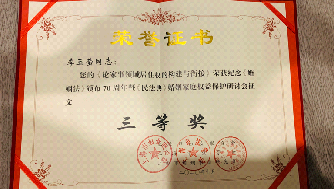 荣誉证书
同志：
您的《论家事领域居住权的构建与衔接》荣获纪念《婚
姻法》颁布70周年暨《民法典》婚姻家庭权益保护研讨会征
文
三等奖